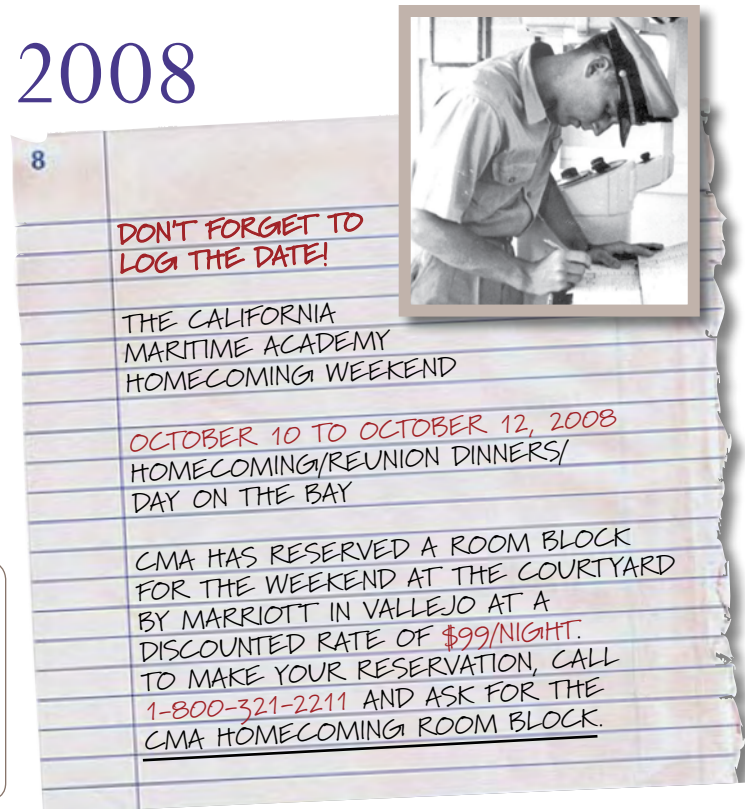 2008
8
DON'T FORGET TO
LOG THE DATE!
THE CALIFORNIA
MARITIME ACADEMY
HOMECOMING WEEKEND
OCTOBER 10 TO OCTOBER 12, 2008
HOMECOMING/REUNION DINNERS/
DAY ON THE BAY
CMA HAS RESERVED A ROOM BLOCK
FOR THE WEEKEND AT THE COURTYARD
BY MARRIOTT IN VALLEJO AT A
DISCOUNTED RATE OF $99/NIGHT.
TO MAKE YOUR RESERVATION, CALL
1-800-321-2211 AND ASK FOR THE
CMA HOMECOMING ROOM BLOCK.